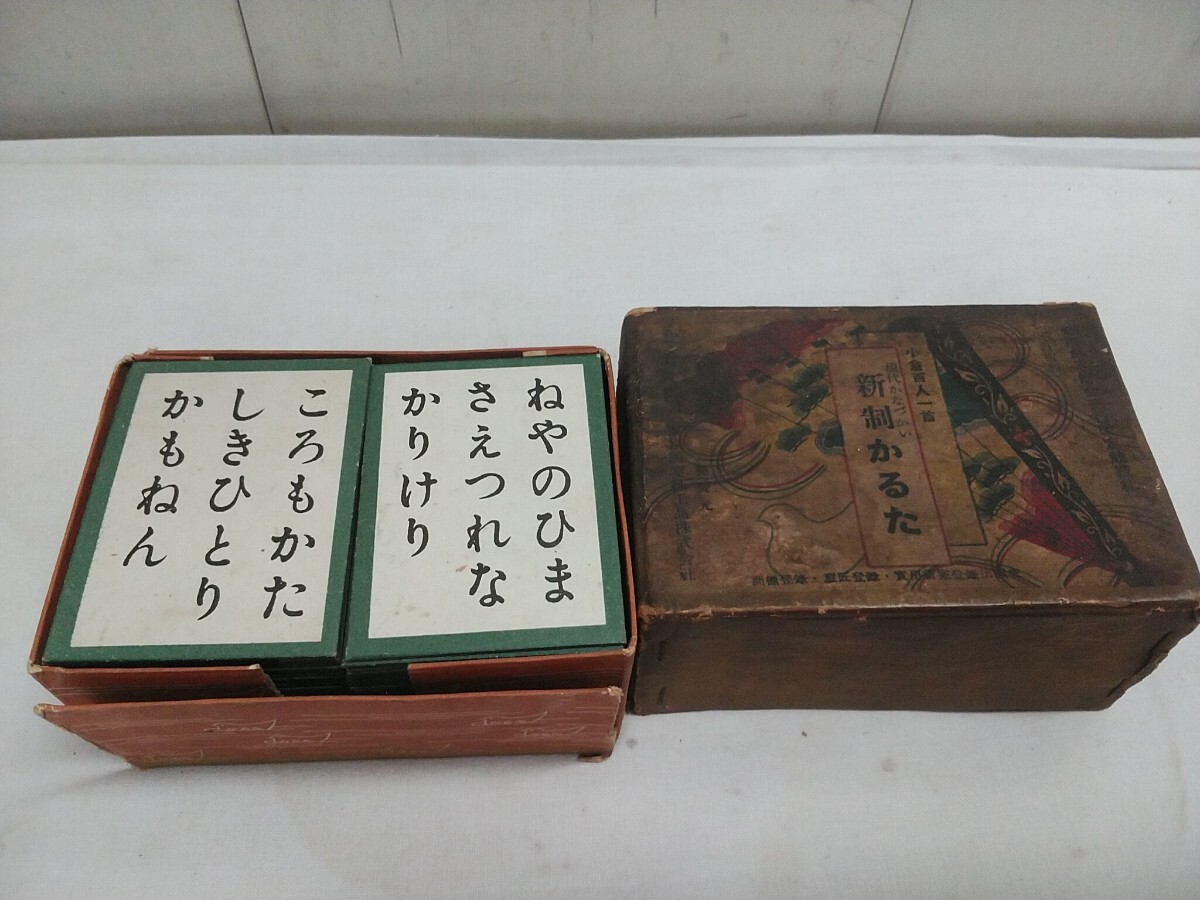 ころもかた
しきひとり
かもねん
ねやのひま
さえつれな
かりけり
小倉百人一首
現代かなづかい
新制かるた
商標登録・意匠登録・實用新案登録